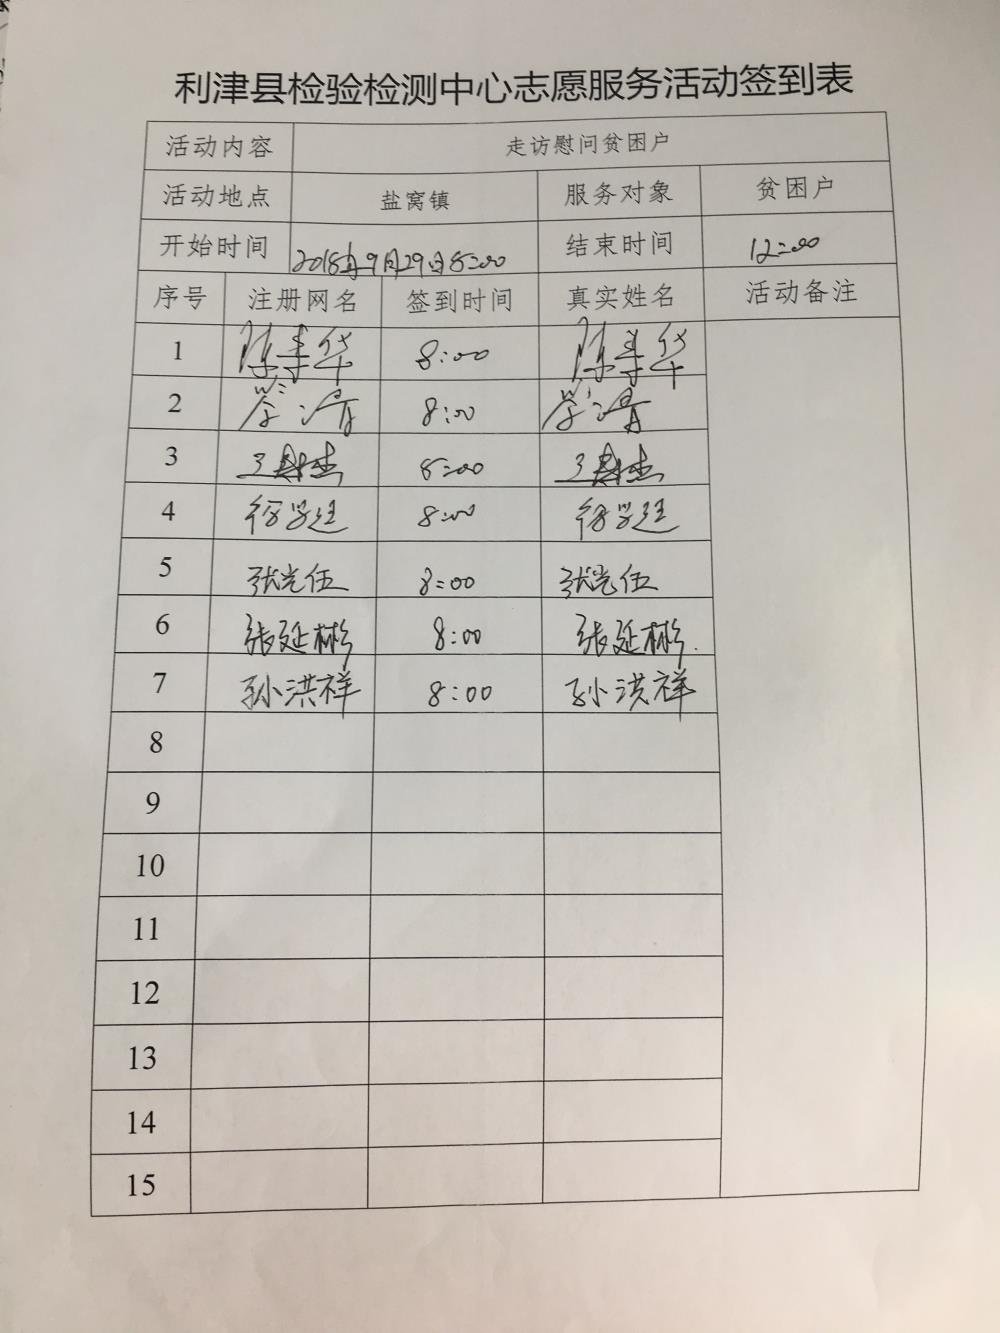 利津县检验检测中心志愿服务活动签到表
活动内容 走访慰问贫困户
活动地点 盐窝镇 服务对象 贫困户
开始时间 2018年9月29日8:00 结束时间 12:00
序号 注册网名 签到时间 真实姓名 活动备注
1 陈寿华 8:00 陈寿华
2 8:00
3 8:00
4 8:00
5 张光伍 8:00 张光伍
6 张延彬 8:00 张延彬
7 孙洪祥 8:00 孙洪祥
8
9
10
11
12
13
14
15